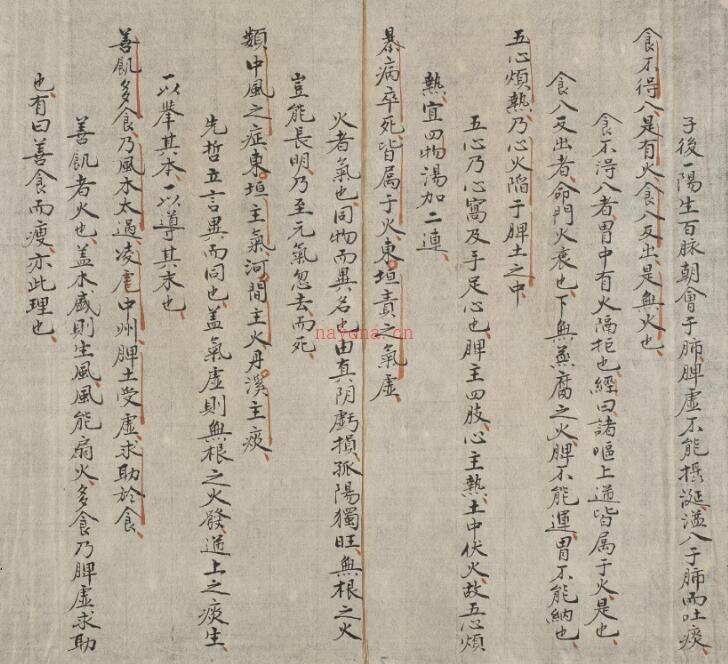 子後一陽生百脉朝會于肺脾虛不能攝涎溢入于肺而吐痰
食不得入是有火食入反出是無火也
食不得入者胃中有火隔拒也經曰諸嘔上逆皆属于火是也
食入反出者命門火衰也下無蒸腐之火脾不能運胃不能納也
五心煩熱乃心火陷于脾土之中
五心乃心窩及手足心也脾主四肢心主熱土中伏火故五心煩
熱宜四物湯加二連
暴病卒死皆属于火東垣責之氣虛
火者氣也同物而異名也由真阴虧損孤陽獨旺無根之火
豈能長明乃至元氣忽去而死
類中風之症東垣主氣河間主火丹溪主痰
先哲立言異而同也盖氣虛則無根之火發逆上之痰生
一以舉其本一以導其末也
善飢多食乃風木太過凌虐中州脾土受虛求助於食
善飢者火也盖木盛則生風風能扇火多食乃脾虛求助
也有曰善食而瘦亦此理也
nayona.cn